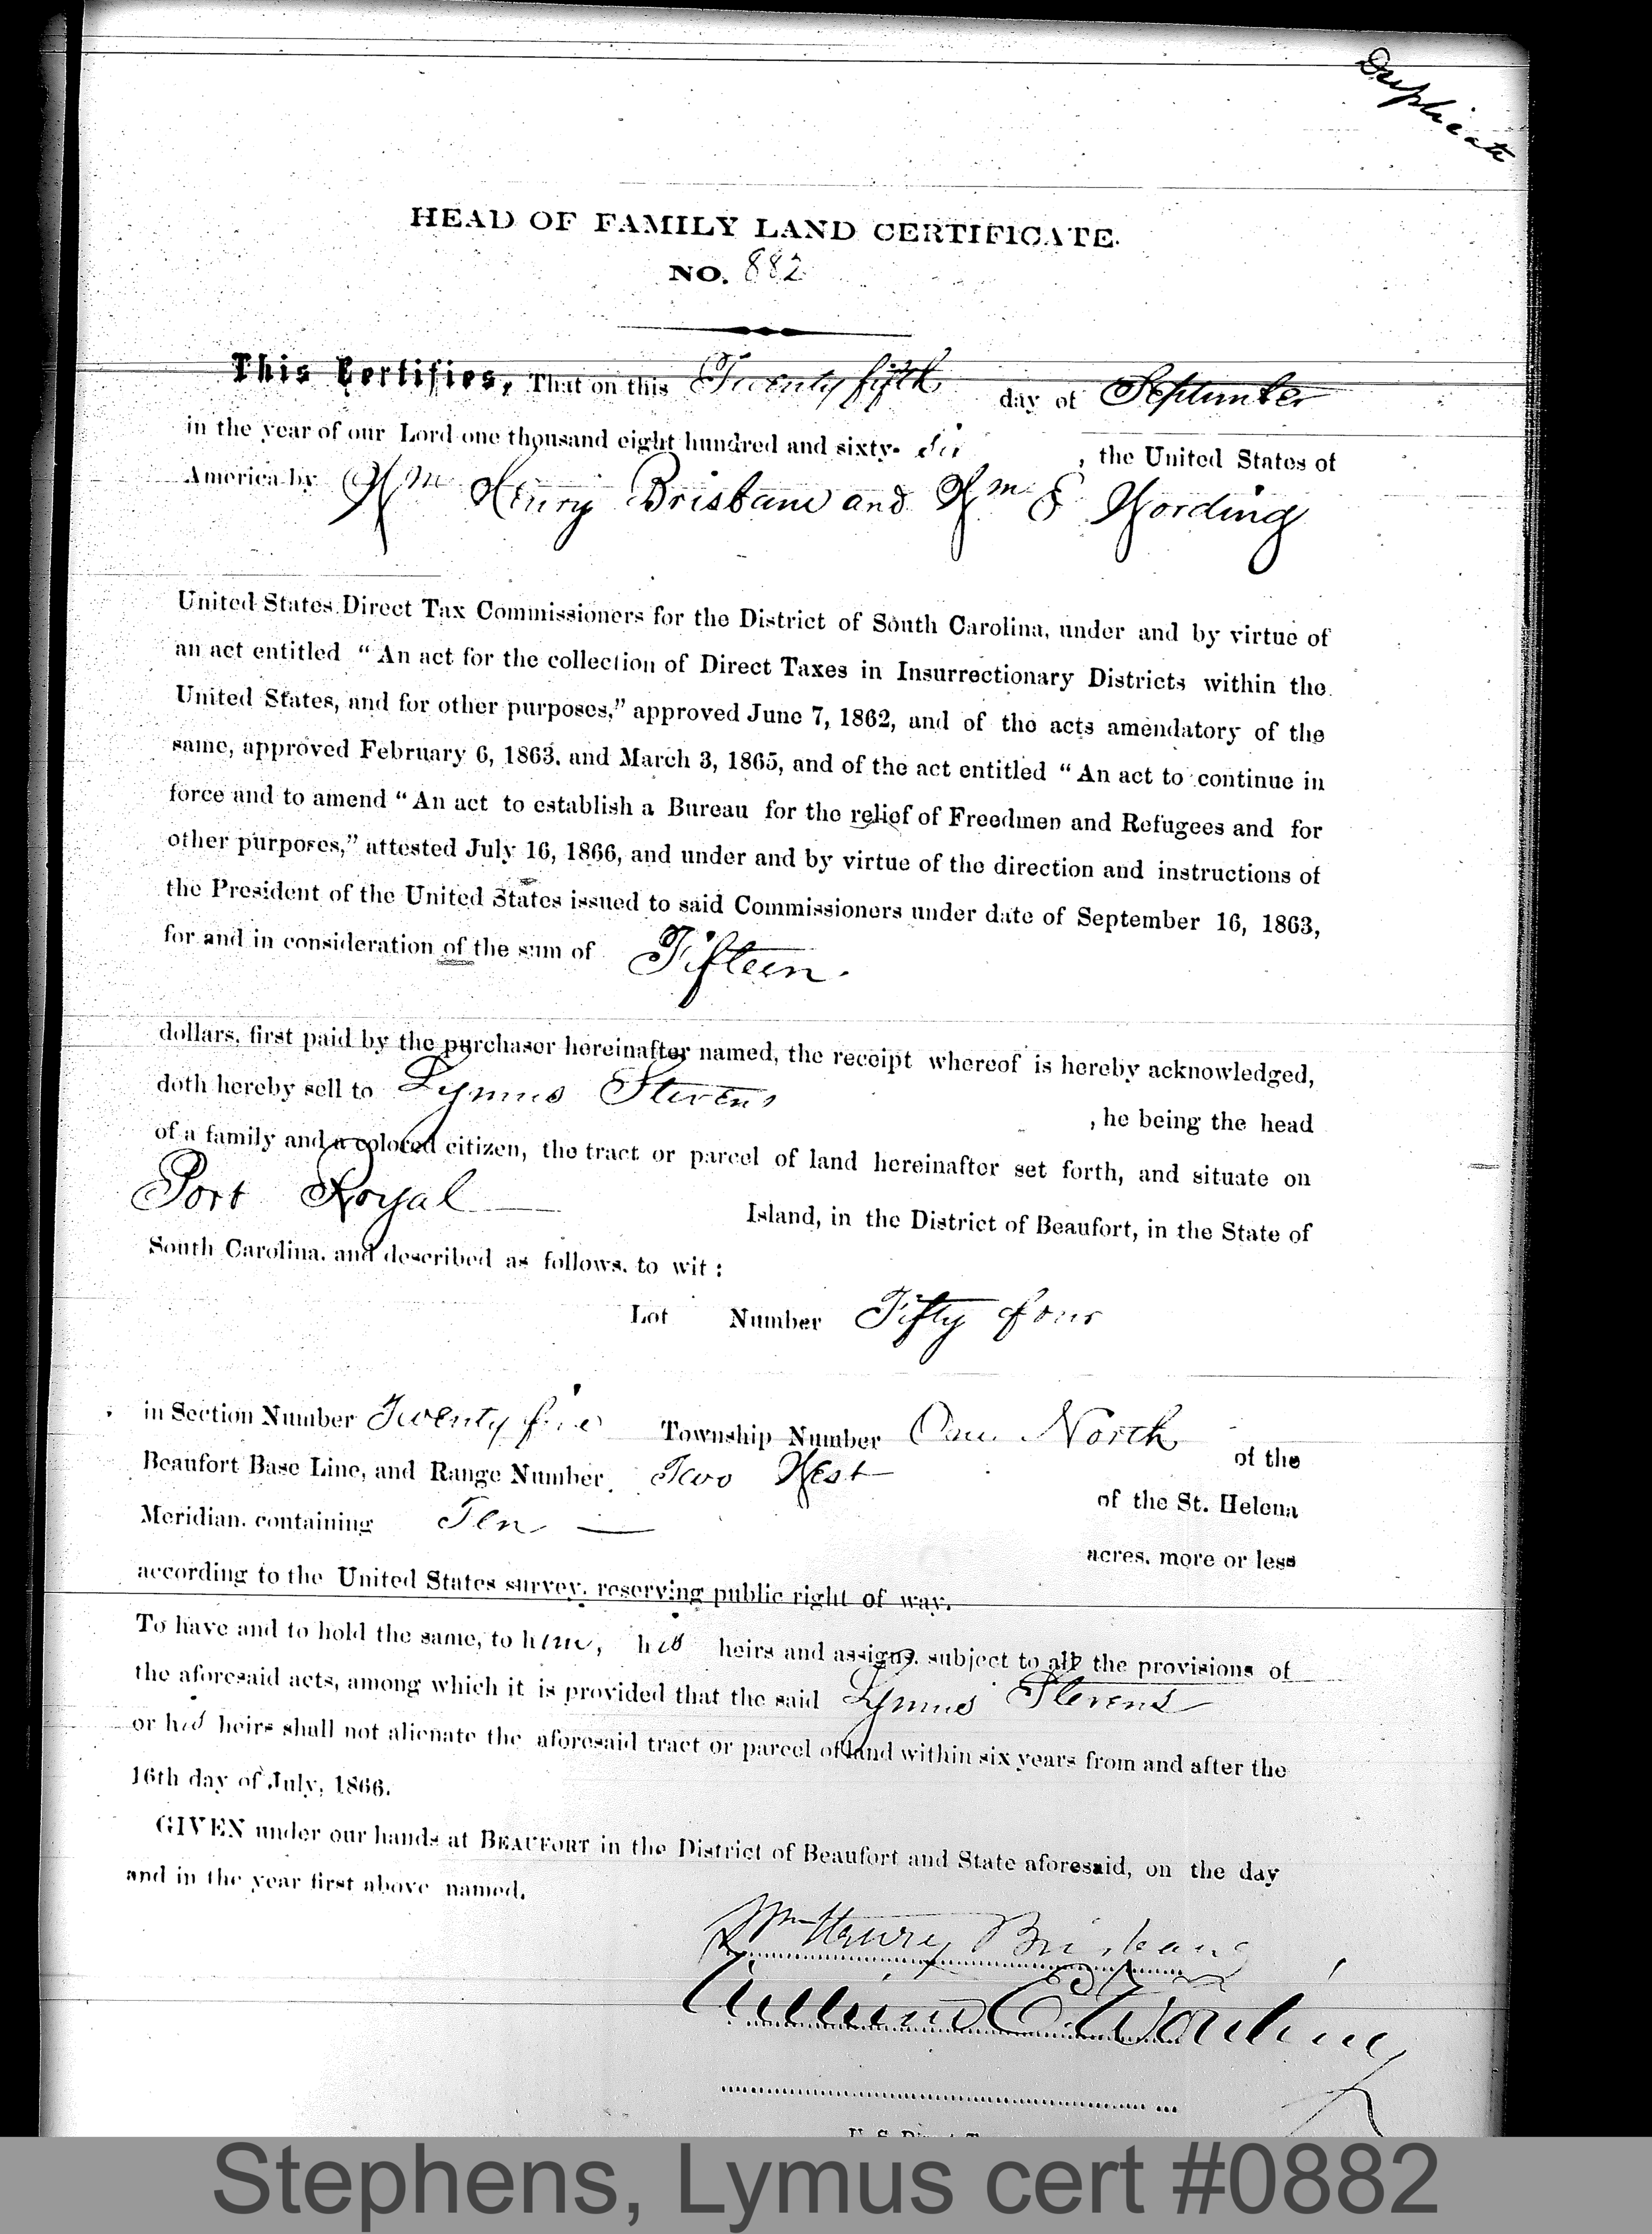 Duplicate
HEAD OF FAMILY LAND CERTIFICATE.
NO. 882
This Certifies, That on this Twenty fifth day of September
in the year of our Lord one thousand eight hundred and sixty-six, the United States of
America by Wm Henry Brisbane and Wm E Wording
United States Direct Tax Commissioners for the District of South Carolina, under and by virtue of
an act entitled "An act for the collection of Direct Taxes in Insurrectionary Districts within the
United States, and for other purposes," approved June 7, 1862, and of the acts amendatory of the
same, approved February 6, 1863, and March 3, 1865, and of the act entitled "An act to continue in
force and to amend "An act to establish a Bureau for the relief of Freedmen and Refugees and for
other purposes," attested July 16, 1866, and under and by virtue of the direction and instructions of
the President of the United States issued to said Commissioners under date of September 16, 1863,
for and in consideration of the sum of Fifteen
dollars, first paid by the purchaser hereinafter named, the receipt whereof is hereby acknowledged,
doth hereby sell to Lymus Stevens, he being the head
of a family and a colored citizen, the tract or parcel of land hereinafter set forth, and situate on
Port Royal Island, in the District of Beaufort, in the State of
South Carolina, and described as follows, to wit:
Lot Number Fifty four
in Section Number Twenty five Township Number One North of the
Beaufort Base Line, and Range Number Two West of the St. Helena
Meridian, containing Ten acres, more or less
according to the United States survey, reserving public right of way.
To have and to hold the same, to him, his heirs and assigns, subject to all the provisions of
the aforesaid acts, among which it is provided that the said Lymus Stevens
or his heirs shall not alienate the aforesaid tract or parcel of land within six years from and after the
16th day of July, 1866.
GIVEN under our hands at BEAUFORT in the District of Beaufort and State aforesaid, on the day
and in the year first above named.
Wm Henry Brisbane
William E. Wording
Stephens, Lymus cert #0882